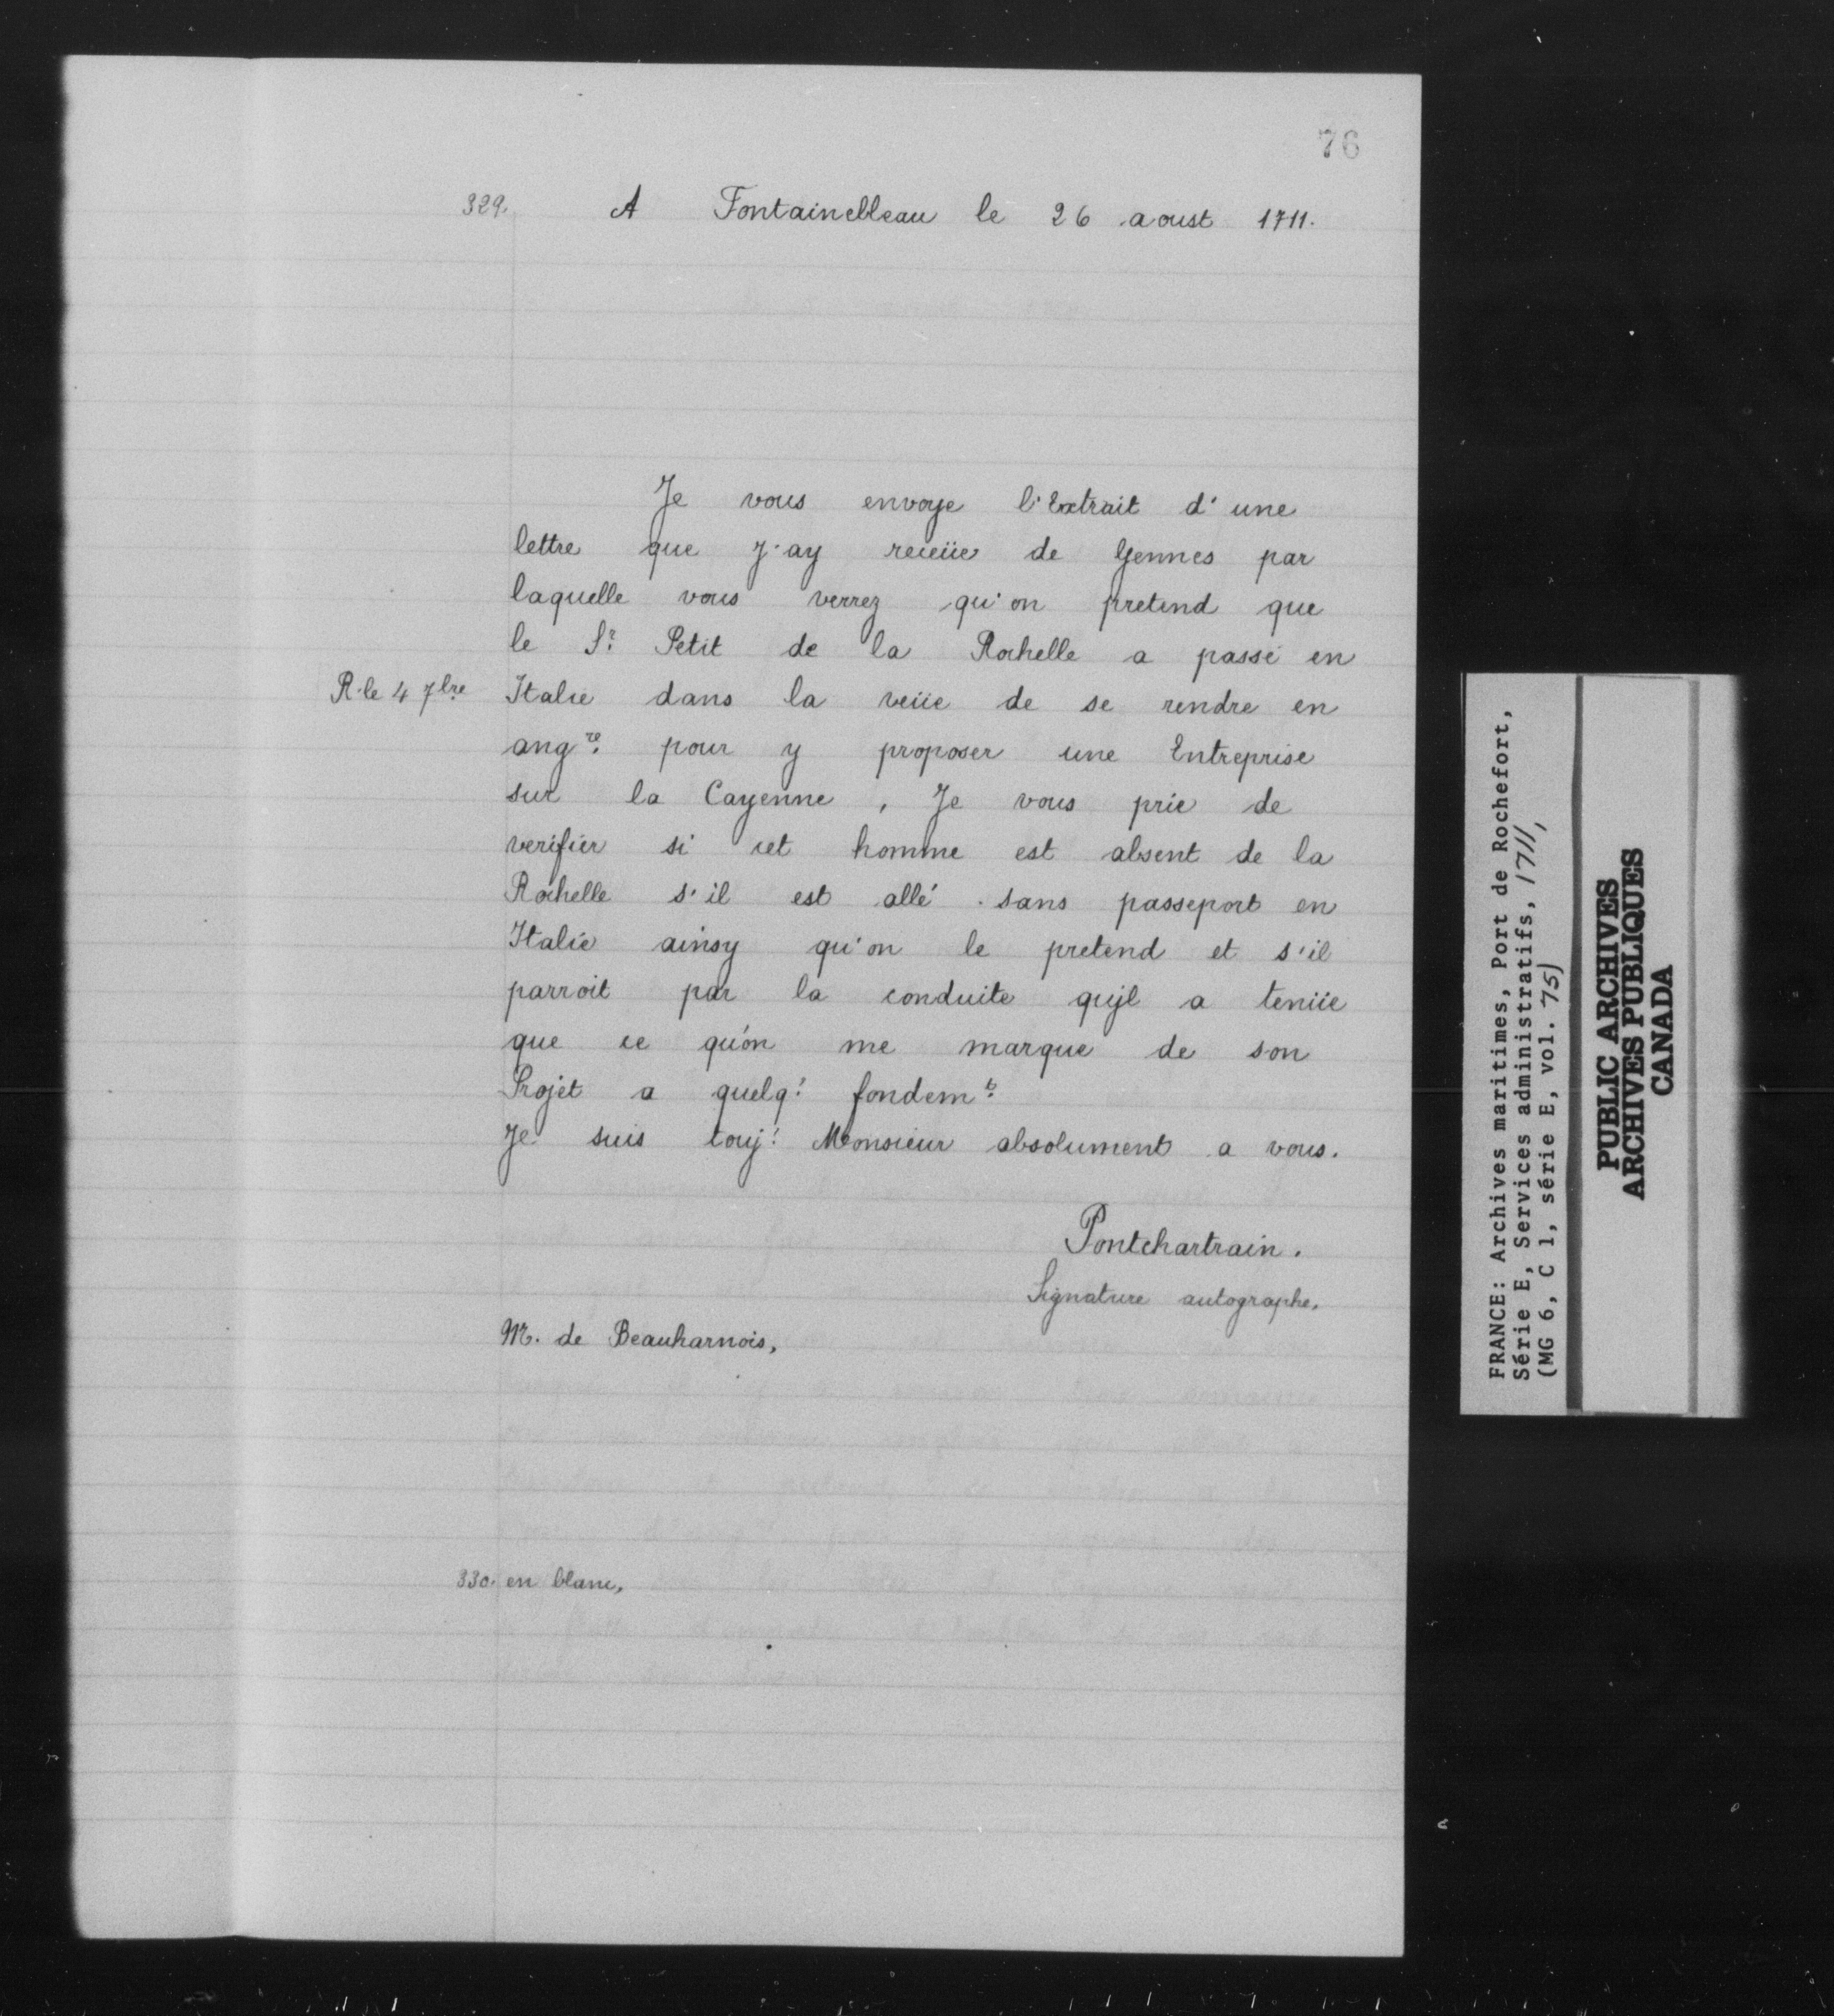 76
329. A Fontainebleau le 26 aoust 1711.
Je vous envoye l'Extrait d'une
lettre que j'ay receüe de Gennes par
laquelle vous verrez qu'on pretend que
le Sr. Petit de la Rochelle a passé en
R. le 4 7bre Italie dans la veüe de se rendre en
angre. pour y proposer une Entreprise
sur la Cayenne, Je vous prie de
verifier si cet homme est absent de la
Rochelle s'il est allé sans passeport en
Italie ainsy qu'on le pretend et s'il
parroit par la conduite qujl a teniie
que ce qu'on me marque de son
Projet a quelq! fondemt.
Je suis touj! Monsieur absolument a vous.
Pontchartrain.
Signature autographe.
Mr. de Beauharnois,
330. en blanc,
FRANCE: Archives maritimes, Port de Rochefort,
Série E, Services administratifs, 1711,
(MG 6, C 1, série E, vol. 75)
PUBLIC ARCHIVES
ARCHIVES PUBLIQUES
CANADA